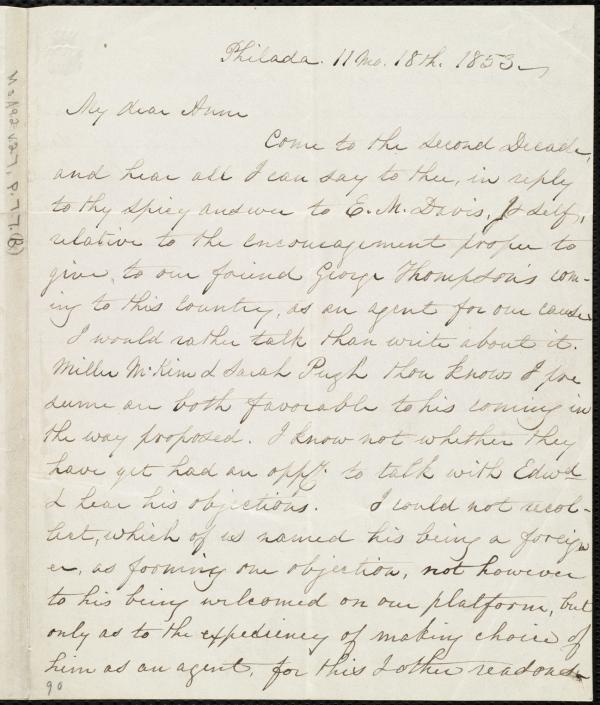 Philada. 11 mo. 18th. 1853.
My dear Anne
Come to the second Decade,
and hear all I can say to thee, in reply
to thy spicy answer to E. M. Davis, & self,
relative to the encouragement proper to
give, to our friend George Thompson's com-
ing to this Country, as an agent for our cause
I would rather talk than write about it.
Miller McKim & Sarah Pugh thou knows I pre
sume are both favorable to his coming in
the way proposed. I know not whether they
have yet had an oppy. to talk with Edwd
& hear his objections. I could not recol-
lect, which of us named his being a foreign
er, as forming one objection, not however
to his being welcomed on our platform, but
only as to the expediency of making choice of
him as an agent, for this & other reasons
90